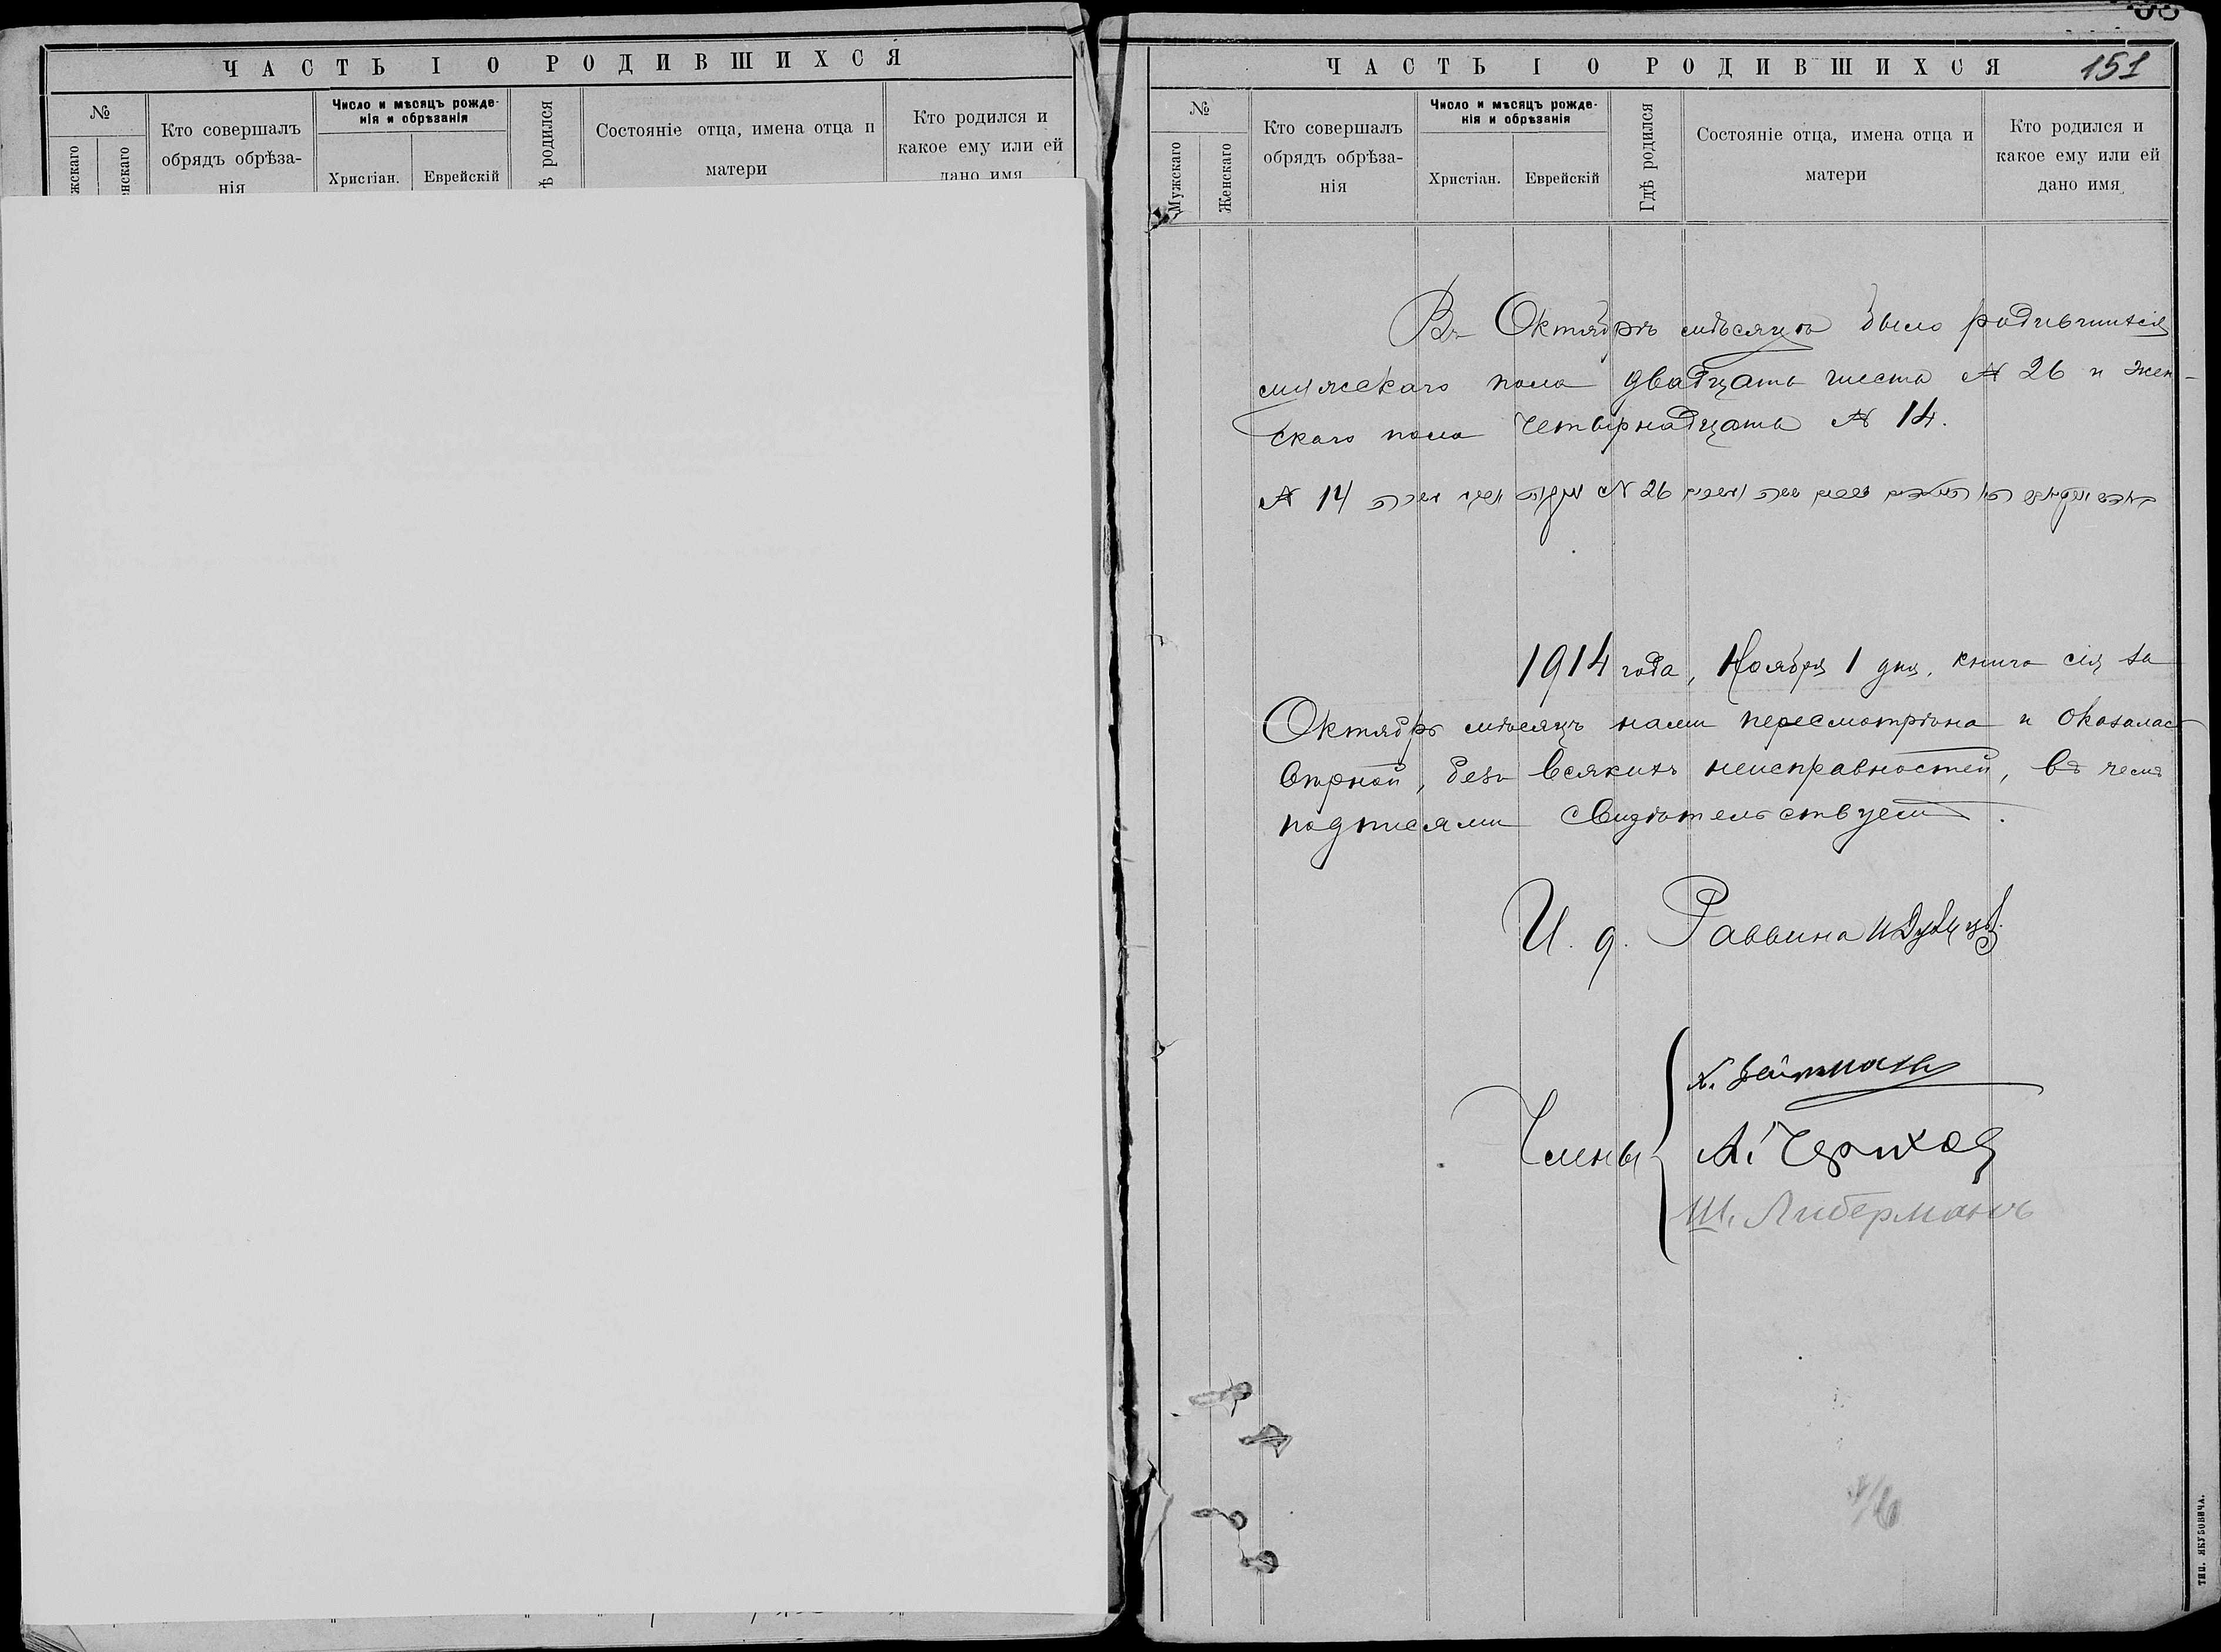 ЧАСТЬ I О РОДИВШИХСЯ
№
жскаго
нскаго
Кто совершалъ
обрядъ обрѣза-
нія
Число и мѣсяцъ рожде-
нія и обрѣзанія
Христіан.
Еврейскій
ѣ родился
Состояніе отца, имена отца и
матери
Кто родился и
какое ему или ей
дано имя
ЧАСТЬ I О РОДИВШИХСЯ
151
№
Мужскаго
Женскаго
Кто совершалъ
обрядъ обрѣза-
нія
Число и мѣсяцъ рожде-
нія и обрѣзанія
Христіан.
Еврейскій
Гдѣ родился
Состояніе отца, имена отца и
матери
Кто родился и
какое ему или ей
дано имя
Въ Октябрѣ мѣсяцѣ было родившихся
мужскаго пола двадцать шесть № 26 и жен-
скаго пола четырнадцать № 14.
№ 14 № 26
1914 года, Ноября 1 дня, книга сія за
Октябрь мѣсяцъ нами пересмотрѣна и оказалась
вѣрной, безъ всякихъ неисправностей, въ чемъ
подписями свидѣтельствуемъ.
И. д. Раввина
Члены
А. Черихов
Ш. Либерманъ
ТИП. ЯКУБОВИЧА.